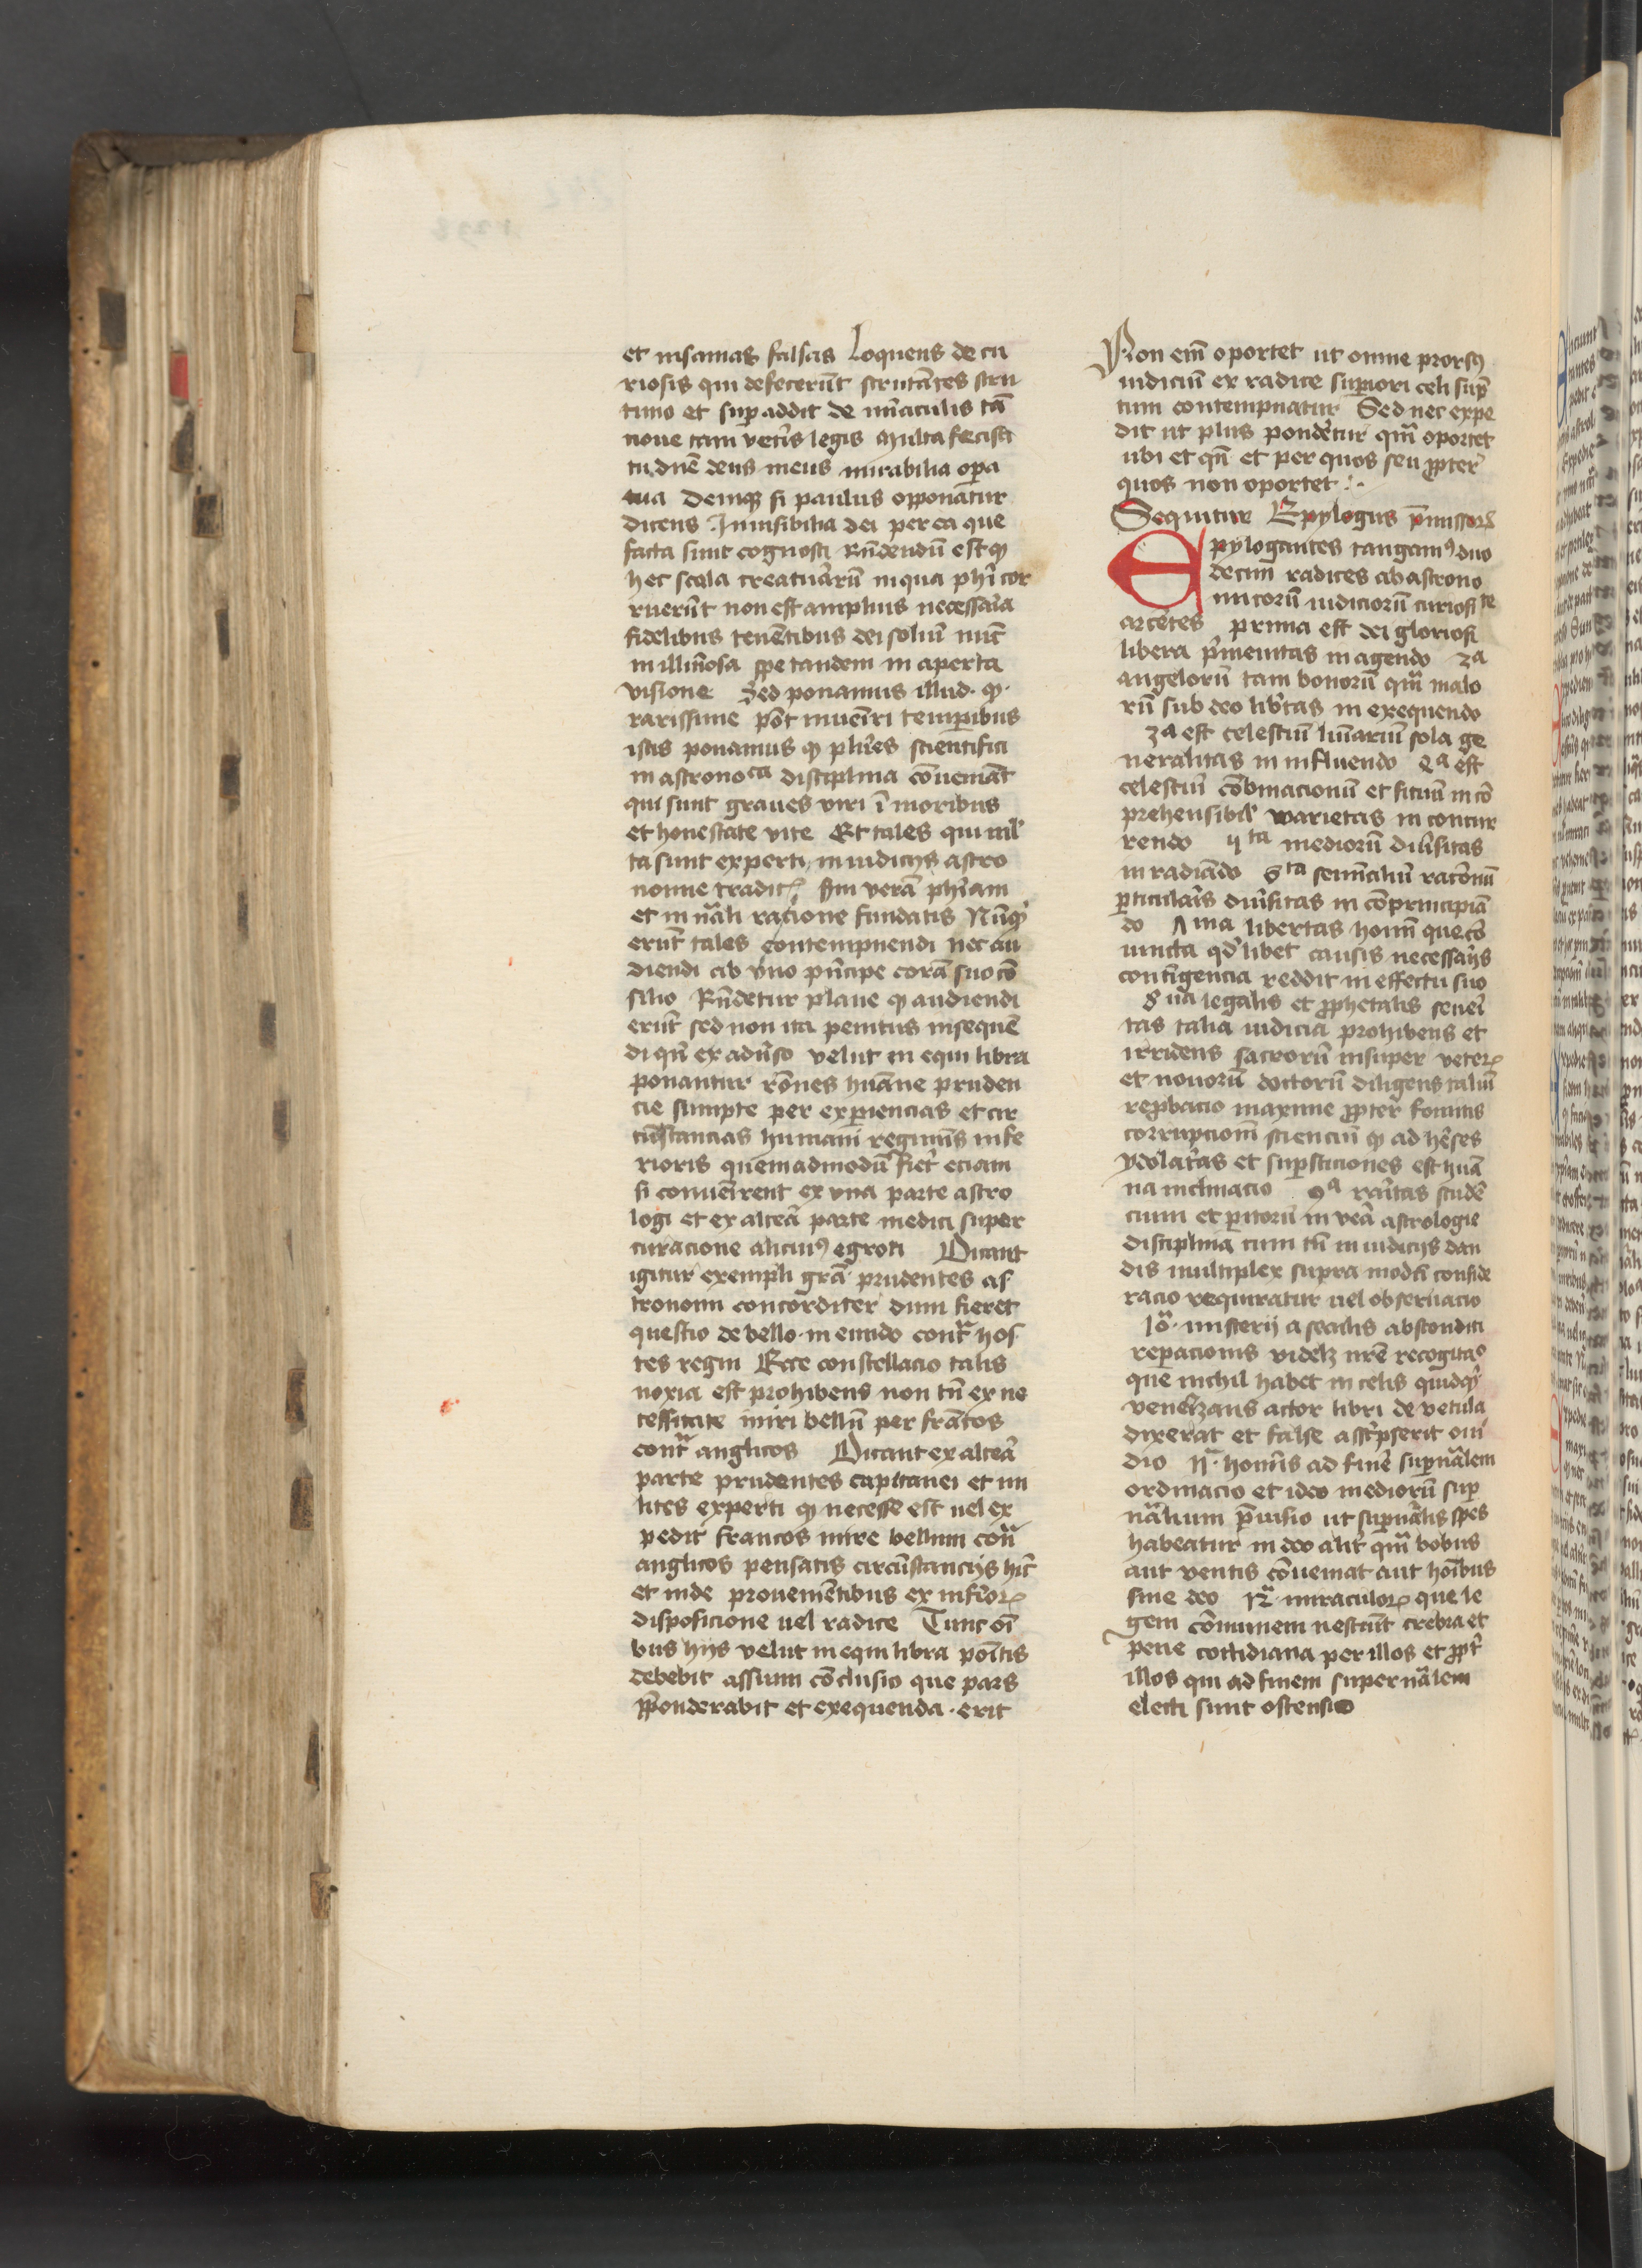 et insanias falsas Loquens de cu
riosis qui defecerūt scrutātes scru
tinio et sup addit de mīaculis tā
noue tam vetīs legis Multa fecisti
tu dnē deus meus mirabilia opa
tua Deniqȝ si paulus opponatur
dicens Inuisibilia dei per ea que
facta sunt cognosci Rūdendū est qͻ
hec scala creaturarū in qua phī cor
ruerūt non est amplius necessāia
fidelibus tenētibus dei soliū nūc
in illimosa spe tandem in aperta
visione Sed ponamus illud · qͻ ·
rarissime pōt inueīri temporibus
istis ponamus qͻ plūes scientifici
in astronoᶜᵃ disciplina cōueniāt
qui sunt graues viri ī moribus
et honestate vite Et tales qui mīl
ta sunt experti in iudicijs astro
nomie tradit scdm verā phīam
et in nāli racione fundatis Nūqͥd
erūt tales contempnendi nec au
diendi ab vno pūcipe corā suo cō
silio Rūdetur plane qͻ audiendi
erūt sed non ita penitus insequē
di qn̄ ex aduīso velut in equi libra
ponantur rōnes huāne pruden
cie sumpte per expiencias et cir
cūstancias humani regiminis infe
rioris quemadmodū fieīt eciam
si conueīrent ex vna parte astro
logi et ex alteā parte medici super
curacione alicuiꝰ egroti Dicant
igitur exempli grā prudentes as
tronomi concorditer dum fieret
questio de bello in eundo contͣ hos
tes regni Ecce constellacio talis
noxia est prohibens non tn̄ ex ne
cessitate iniri bellū per francos
contͣ anglicos Dicant ex alteā
parte prudentes capitanei et mi
lites experti qͻ necesse est uel ex
pedit francos inire bellum contͣ
anglicos pensatis circūstancijs hīc
et inde prouenientibus ex infioꝝ
disposicione uel radice Tunc oī
bus hijs velut in equi libra poītis
debebit assumi cōclusio que pars
ꝓponderabit et exequenda · erit
Non em̄ oportet ut omne prorsꝰ
iudiciū ex radice supiori celi sup
tum contempnatur Sed nec expe
dit ut plus pondetur qm̄ oportet
ubi et qn̄ et per quos seu ꝓpter
quos non oportet :·
Sequitur Epylogus p̄missoꝝ
Epylogantes tangamꝰ duo
decim radices ab astrono
micorū iudiciorū curiositᵗᵉ
arcētes prima est dei gloriosi
libera p̄minenitas in agendo 2ᵃ
angelorū tam bonorū qm̄ malo
rū sub deo libtas in exequendo
3ᵃ est celestiū lūinarium sola ge
neralitas in influendo 4ᵃ est
celestiū cōbinacionū et situū in cō
prehensibil varietas in concur
rendo 5ᵗᵃ mediorū diūsitas
in radiādo 6ᵗᵃ seminaliū racōnū
pticulaīs diūsitas in cōprincipiā
do 7ᵐᵃ libertas homī que cō
iuncta qͣdlibet causis necessāijs
contingencia reddit in effectu suo
8ᵘᵃ legalis et ꝓphetalis seueī
tas talia iudicia prohibens et
irridens sacrorū insuper veteꝝ
et nouorū doctorū diligens taliū
repbacio maxime ꝓpter fomitis
corrupcionē scienciū qͻ ad hēses
ydolatͣas et supsticiones est huā
na inclinacio 9ᵃ raītas studē
cium et pitorū in veā astrologie
disciplina cum tn̄ in iudicijs dan
dis multiplex supra modū conside
racio requiratur uel obseruacio
10ᵃ · misterij a seculis absconditi
repacionis videlꝫ nrē recogitaᵒ
quē nichil habet in celis quidqͥd
venelizans actor libri de vetula
dixerat et false ascͥpserit oui
dio 11ᵃ · homīs ad finē supnālem
ordinacio et ideo mediorū sup
nālium p̄uisio ut supnālis spes
habeatur in deo aliī qm̄ bobus
aut ventis cōueniat aut hoībus
sine deo 12ᵃ · miraculoꝝ que le
gem cōmunem nesciūt crebra et
pene cottidiana per illos et ꝓpͭ
illos qui ad finem supernālem
electi sunt ostensio